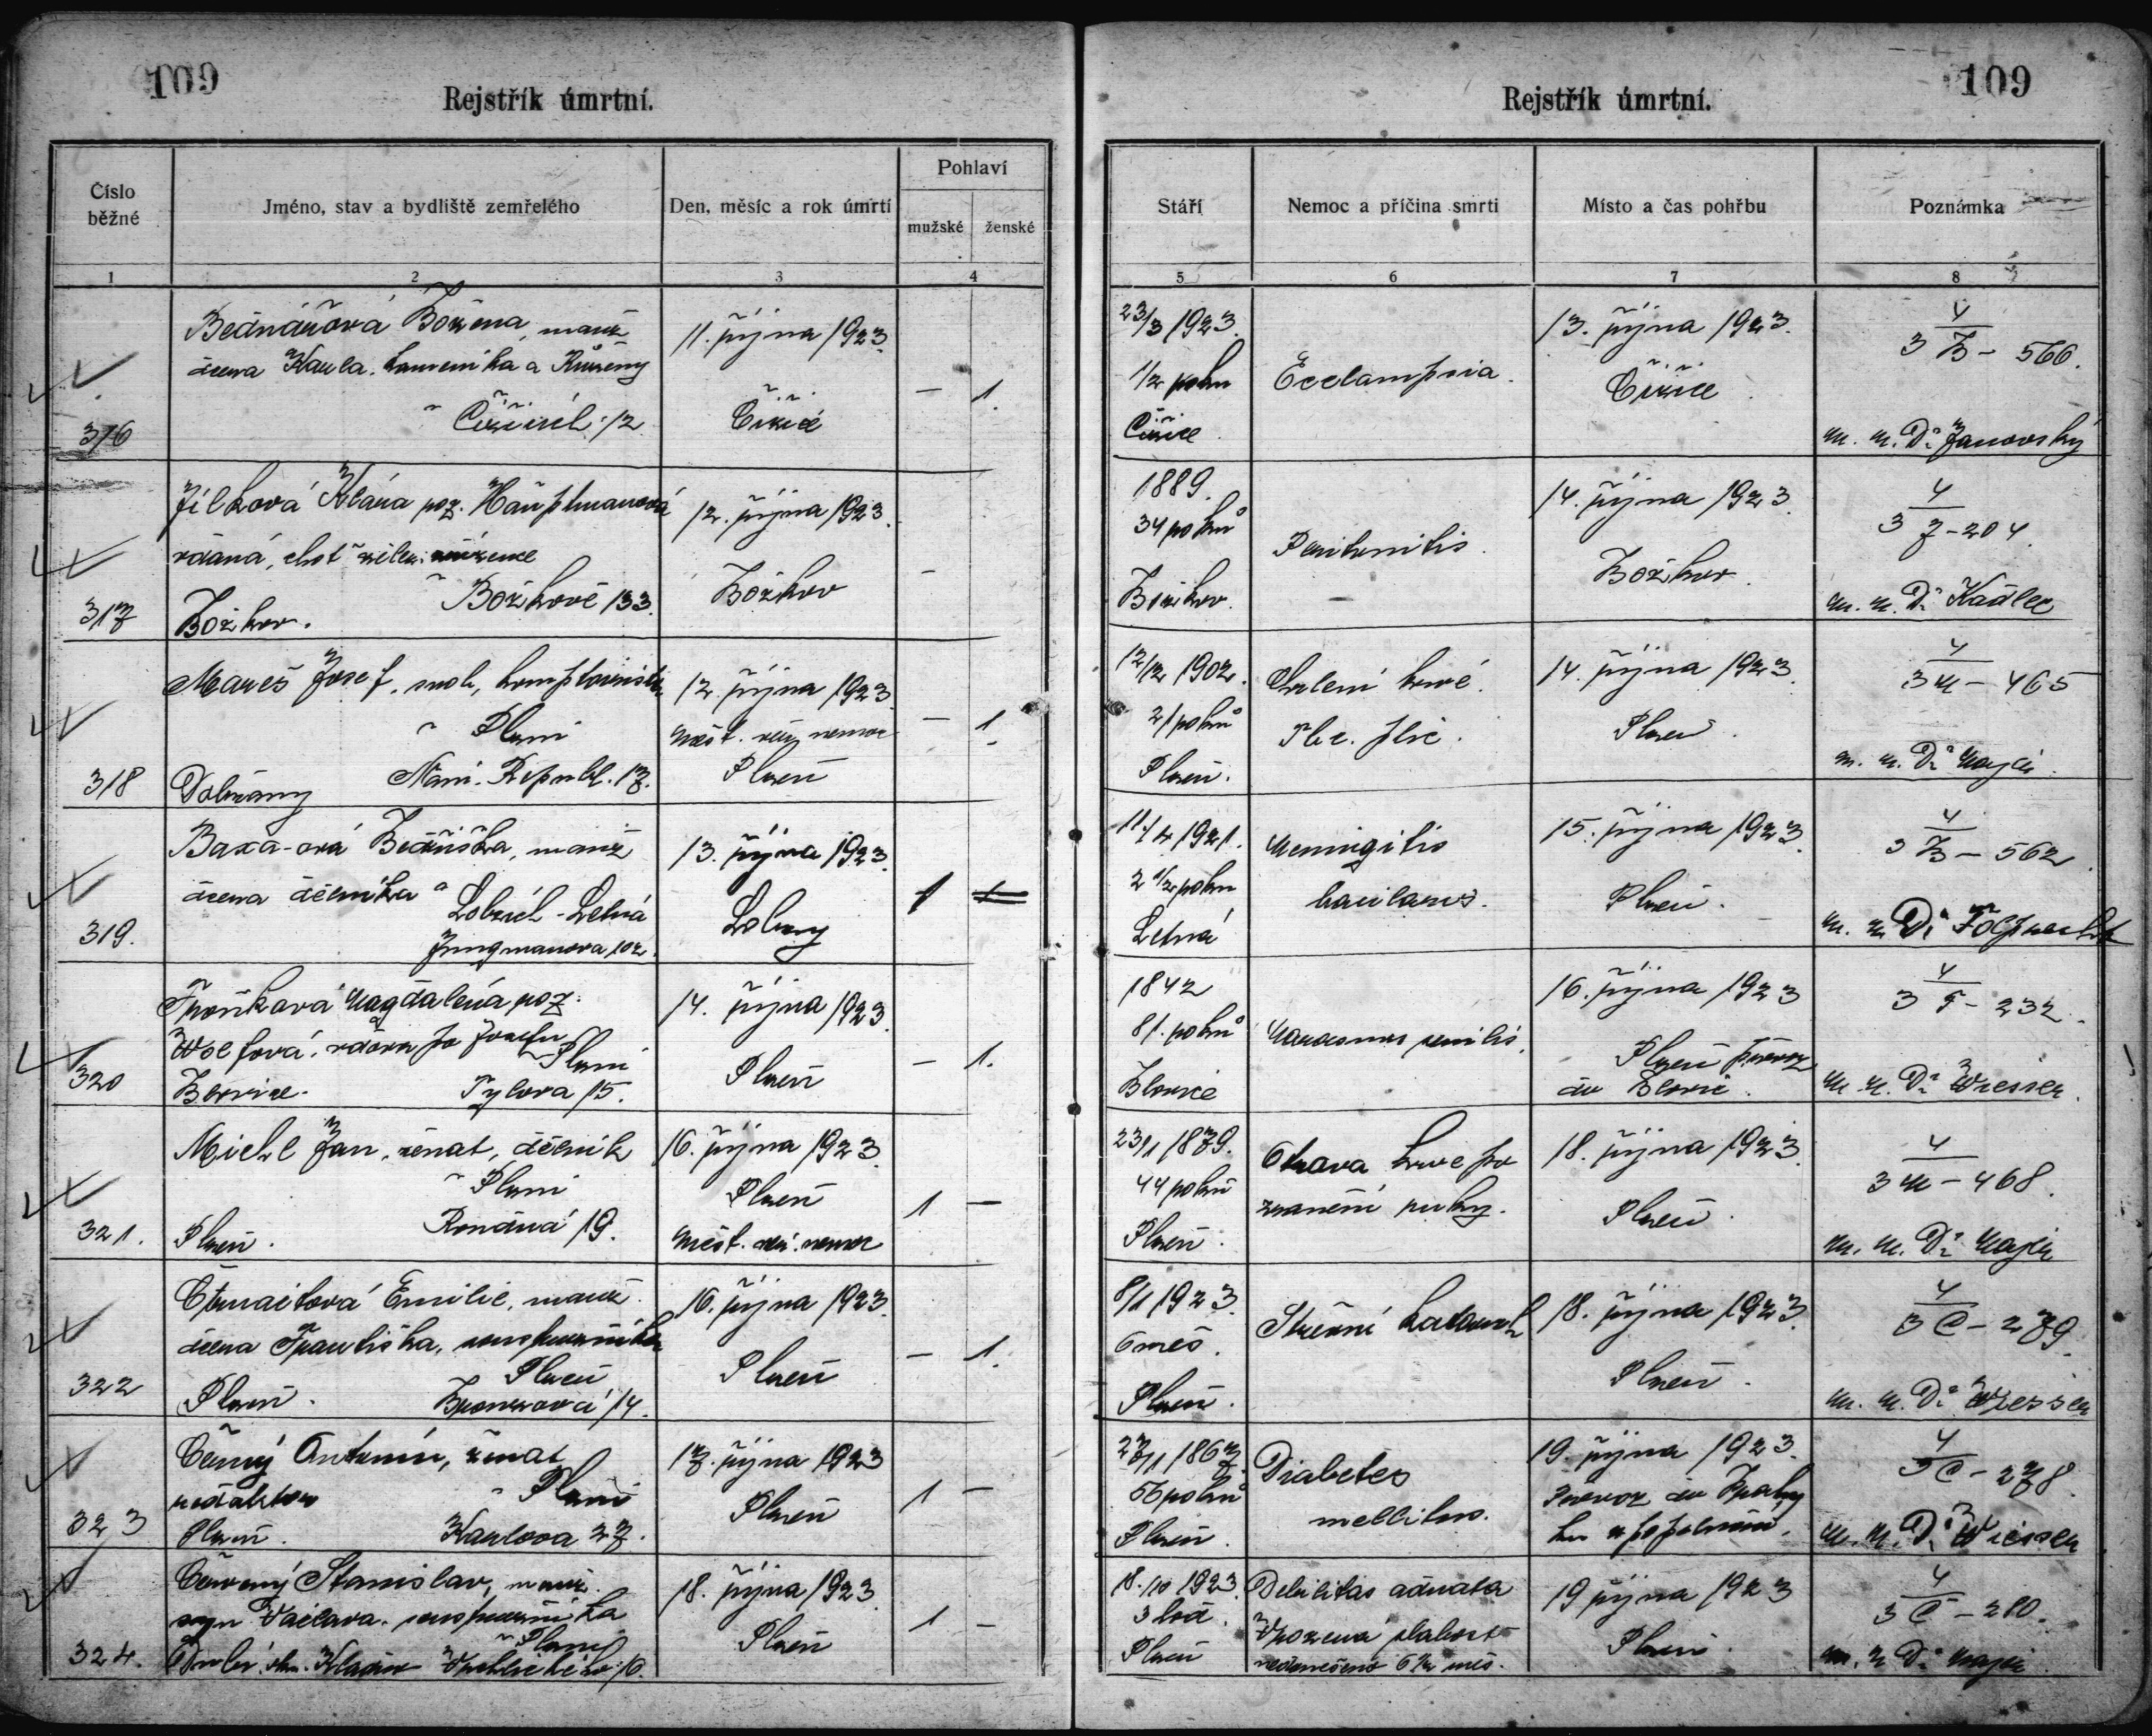 109
Rejstřík úmrtní.
Číslo běžné
Jméno, stav a bydliště zemřelého
Den, měsíc a rok úmrtí
Pohlaví
mužské
ženské
1
2
3
4
Bednářová Božena, manž
dcera Karla
a Růženy
Čižicích 12
11. října 1923
Čižice
–
1
316
Jílková Klára poz. Hauptmanová
vdaná, choť
Božkově 133
Božkov.
12. října 1923
Božkov
–
317
Mareš Josef, svob,
Plzni
Nám. Republ. 17.
Dobřany
12. října 1923
Měst. nemoc
Plzeň
–
1
318
Baxa-ová Bedřiška, manž
dcera dělníka
Lobzích-Letná
Jungmanova 102
13. října 1923
Lobzy
1
319.
Magdaléna poz.
vdova po Josefu
Plzni
Tylova 15.
14. října 1923
Plzeň
–
1.
320
Michl Jan, ženat, dělník
Plzni
19.
Plzeň.
16. října 1923
Plzeň
Měst. nemoc
1
–
321.
Emilie, manž.
dcera Františka,
Plzeň
14.
Plzeň.
16. října 1923
Plzeň
–
1.
322
Černý Antonín, ženat
redaktor
Plzni
Plzeň.
Karlova 27.
17. října 1923
Plzeň
1
–
323
Červený Stanislav, manž.
syn Václava
Plzni
Vrchlického 16.
18. října 1923
Plzeň
1
–
324.
109
Rejstřík úmrtní.
Stáří
Nemoc a příčina smrti
Místo a čas pohřbu
Poznámka
5
6
7
8
23/3 1923.
1/2 roku
Čižice
Ecclampsia.
13. října 1923.
Čižice
4
3 B – 566.
m. r. Dr Janovský
1889.
34 roků
Božkov.
Peritonitis.
14. října 1923
Božkov.
4
3 J – 204
m. r. Dr Kadlec
12/12 1902.
21 roků
Plzeň.
Chrlení krve.
Tbc. plic.
14. října 1923
Plzeň.
4
3 M – 465
m. r. Dr Majer
11/4 1921.
2 1/2 roku
Letná
Meningitis
15. října 1923
Plzeň.
4
3 B – 562
m. r. Dr
1842
81. roků
Blovice
Marasmus senilis.
16. října 1923
Plzeň převoz
do Blovic.
4
3 F – 232
m. r. Dr Wiesser.
23/1 1879.
44 roků
Plzeň.
Otrava krve po
zranění ruky.
18. října 1923
Plzeň.
4
3 M – 468.
m. r. Dr Majer
1923.
měs.
Plzeň.
Střevní katarrh
18. října 1923.
Plzeň.
4
3 C – 279.
m. r. Dr Wiesser
27/1 1867.
56 roků
Plzeň.
Diabetes
mellitus.
19. října 1923.
Převoz do Prahy
ku zpopelnění.
4
3 C – 278.
m. r. Dr Wiesser
18./10 1923.
3 hod.
Plzeň
Debilitas adnata
Vrozená slabost
nedonošeno 6 1/2 měs.
19 října 1923
Plzeň.
4
3 C – 280.
m. r. Dr Majer